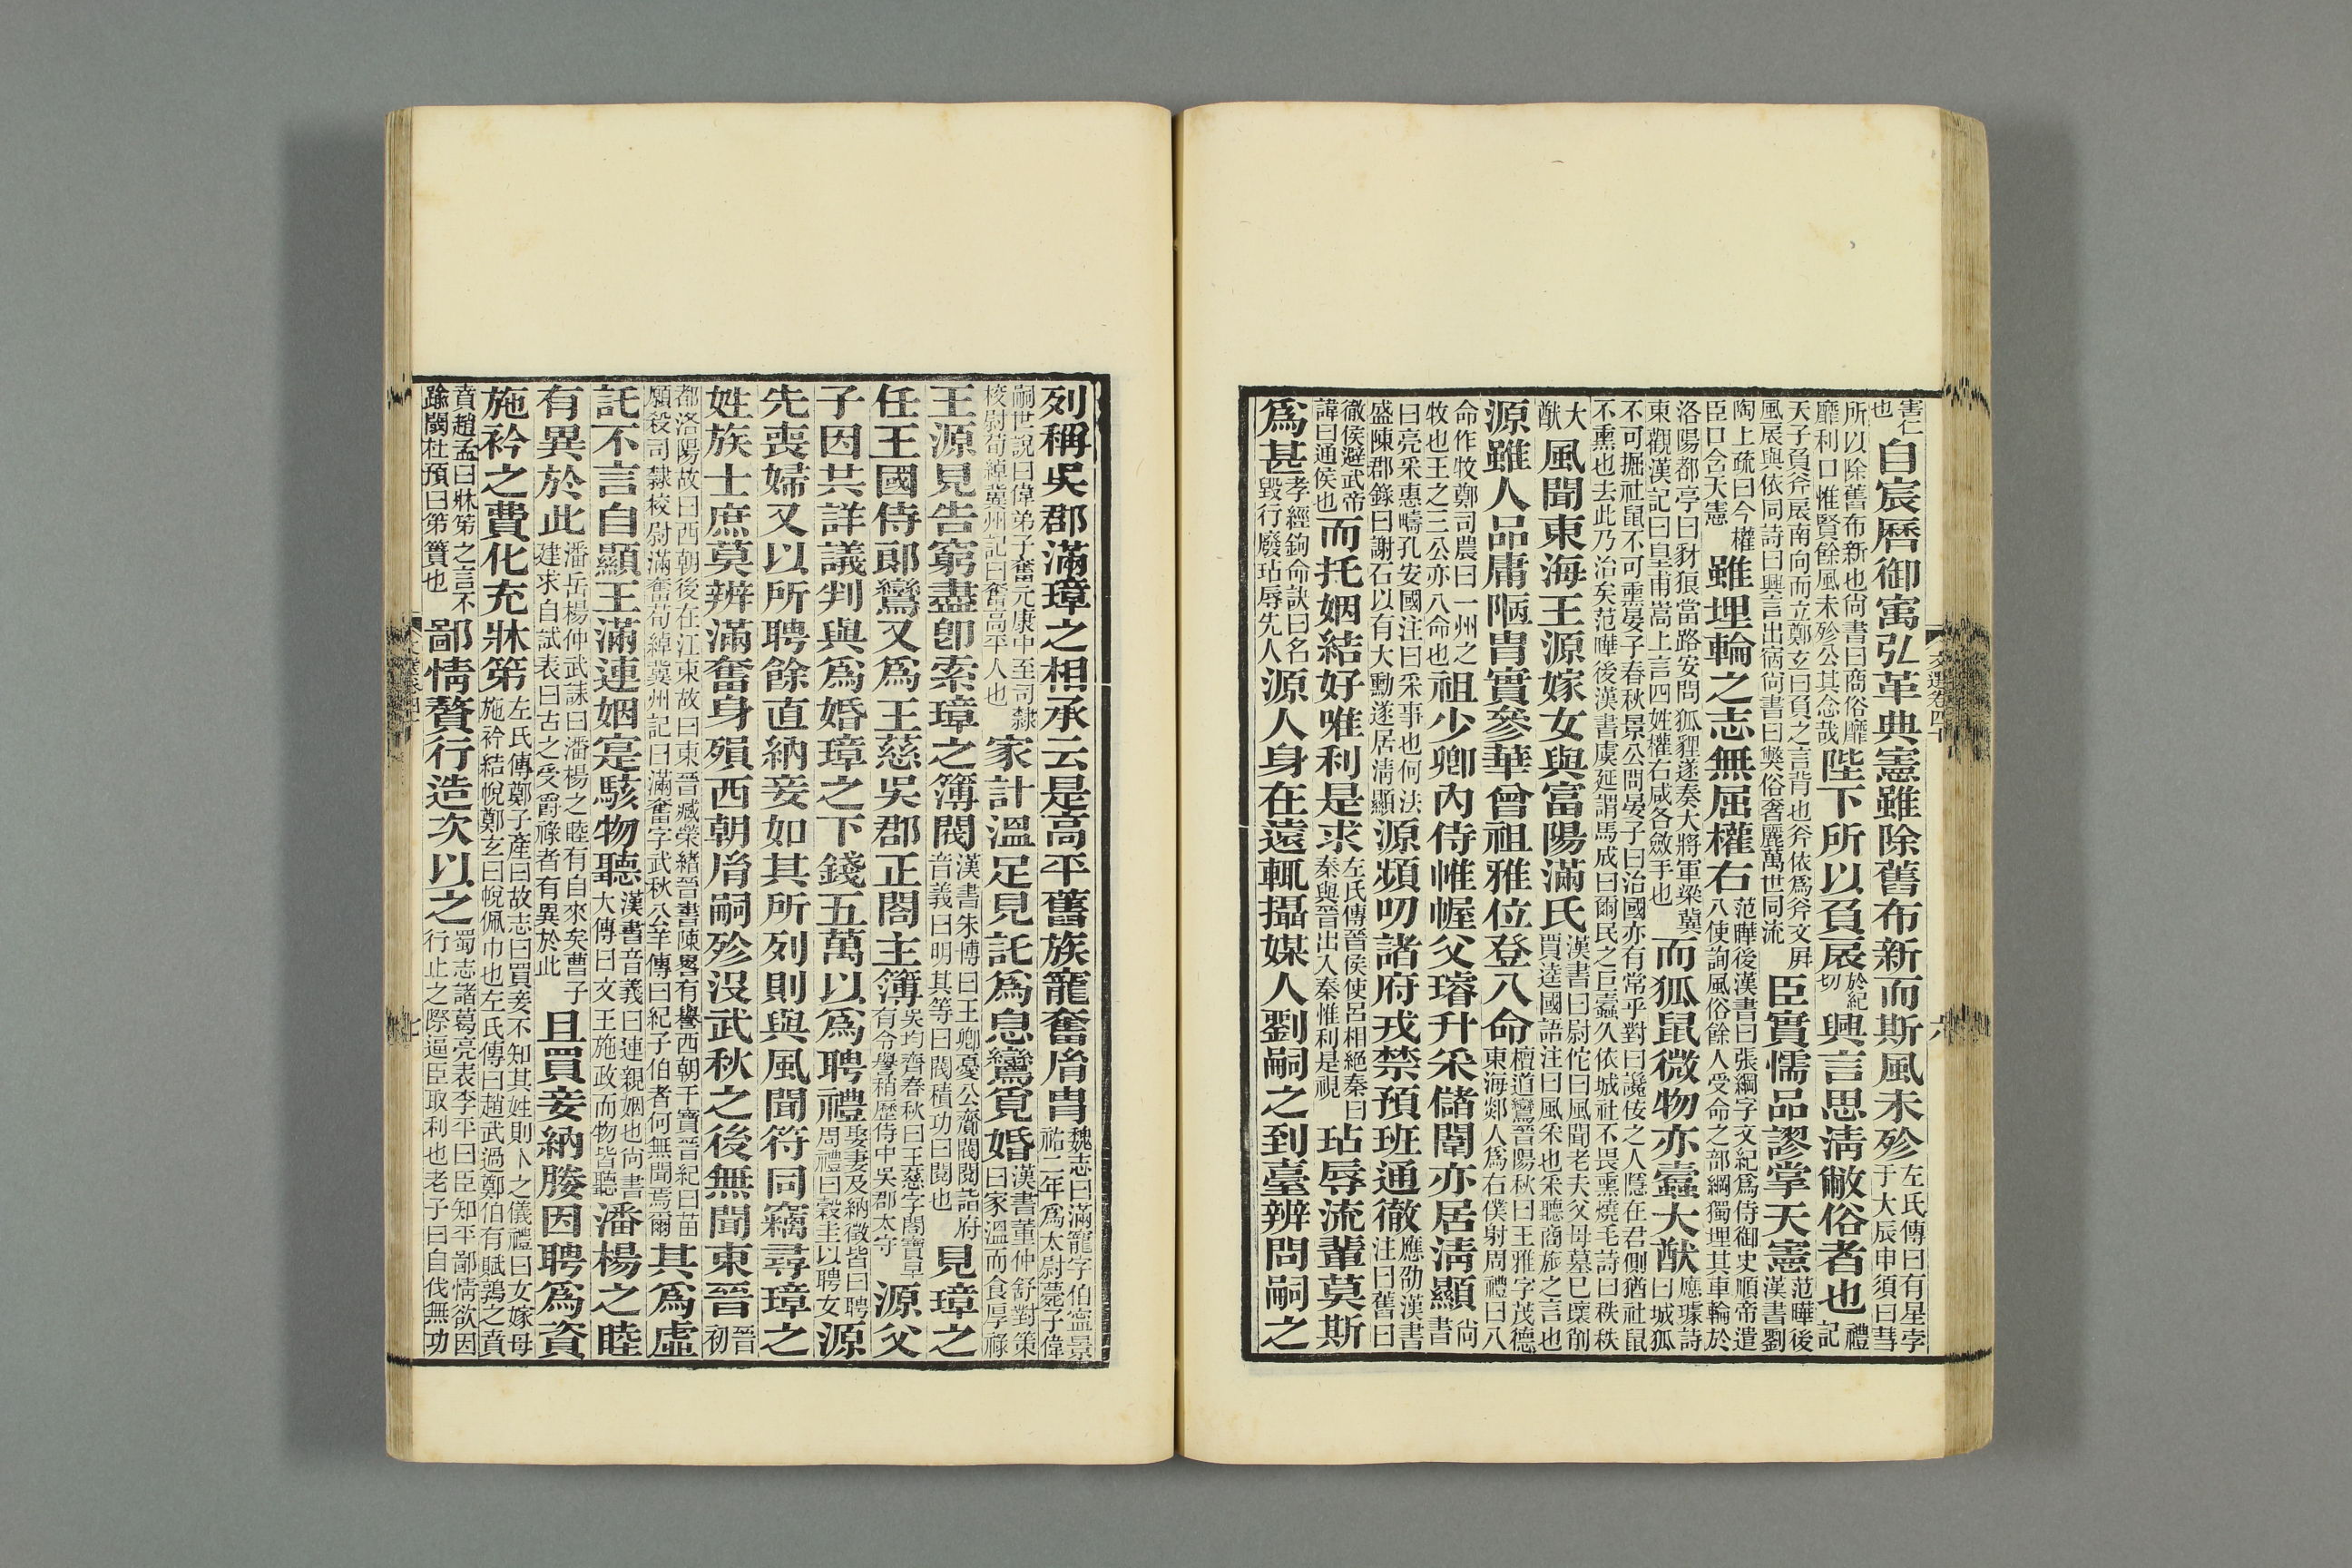 文選卷四十
六
書仁也自宸曆御寓弘革典憲雖除舊布新而斯風未殄左氏傳曰有星孛于大辰申須曰彗
所以除舊布新也尚書曰商俗靡靡利口惟賢餘風未殄公其念哉陛下所以負扆於紀切興言思淸敝俗者也禮記
天子負斧扆南向而立鄭玄曰負之言背也斧依爲斧文屏風扆與依同詩曰興言出宿尚書曰獘俗奢麗萬世同流臣實懦品謬掌天憲范曄後漢書劉
陶上疏曰今權臣口含天憲雖埋輪之志無屈權右范曄後漢書曰張綱字文紀爲侍御史順帝遣八使詢風俗餘人受命之部綱獨埋其車輪於
洛陽都亭曰豺狼當路安問狐貍遂奏大將軍梁冀東觀漢記曰皇甫嵩上言四姓權右咸各斂手也而狐鼠微物亦蠹大猷應璩詩曰城狐
不可掘社鼠不可熏晏子春秋景公問晏子曰治國亦有常乎對曰讒佞之人隱在君側猶社鼠不熏也去此乃治矣范曄後漢書虞延謂馬成曰爾民之巨蠹久依城社不畏熏燒毛詩曰秩秩
大猷風聞東海王源嫁女與富陽滿氏漢書曰尉佗曰風聞老夫父母墓已壞削賈逵國語注曰風采也采聽商旅之言也
源雖人品庸陋胄實參華曾祖雅位登八命檀道鸞晉陽秋曰王雅字茂德東海郯人爲右僕射周禮曰八
命作牧鄭司農曰一州之牧也王之三公亦八命也祖少卿內侍帷幄父璿升采儲闈亦居淸顯尚書
曰亮采惠疇孔安國注曰采事也何法盛陳郡錄曰謝石以有大勳遂居淸顯源頻叨諸府戎禁預班通徹應劭漢書注曰舊曰
徹侯避武帝諱曰通侯也而托姻結好唯利是求左氏傳晉侯使呂相絕秦曰秦與晉出入秦惟利是視玷辱流輩莫斯
爲甚孝經鉤命訣曰名毀行廢玷辱先人源人身在遠輒攝媒人劉嗣之到臺辨問嗣之
列稱吳郡滿璋之相承云是高平舊族寵奮胤胄魏志曰滿寵字伯寧景祐二年爲太尉薨子偉
嗣世說曰偉弟子奮元康中至司隸校尉荀綽冀州記曰奮高平人也家計溫足見託爲息鸞覓婚漢書董仲舒對策曰家溫而食厚祿
王源見告窮盡卽索璋之簿閥漢書朱博曰王卿憂公齎閥閱詣府音義曰明其等曰閥積功曰閱也見璋之
任王國侍郞鸞又爲王慈吳郡正閤主簿吳均齊春秋曰王慈字閤寶早有令譽稍歷侍中吳郡太守源父
子因共詳議判與爲婚璋之下錢五萬以爲聘禮娶妻及納徵皆曰聘周禮曰穀圭以聘女源
先喪婦又以所聘餘直納妾如其所列則與風聞符同竊尋璋之
姓族士庶莫辨滿奮身殞西朝胤嗣殄沒武秋之後無聞東晉晉初
都洛陽故曰西朝後在江東故曰東晉臧榮緖晉書陳畧有譽西朝干寶晉紀曰苗願殺司隸校尉滿奮荀綽冀州記曰滿奮字武秋公羊傳曰紀子伯者何無聞焉爾其爲虛
託不言自顯王滿連姻寔駭物聽漢書音義曰連親姻也尚書大傳曰文王施政而物皆聽潘楊之睦
有異於此潘岳楊仲武誄曰潘楊之睦有自來矣曹子建求自試表曰古之受爵祿者有異於此且買妾納媵因聘爲資
施衿之費化充牀笫左氏傳鄭子產曰故志曰買妾不知其姓則卜之儀禮曰女嫁母施衿結帨鄭玄曰帨佩巾也左氏傳曰趙武過鄭伯有賦鶉之賁
賁趙孟曰牀笫之言不踰閾杜預曰笫簀也鄙情贅行造次以之蜀志諸葛亮表李平曰臣知平鄙情欲因行止之際逼臣取利也老子曰自伐無功
七